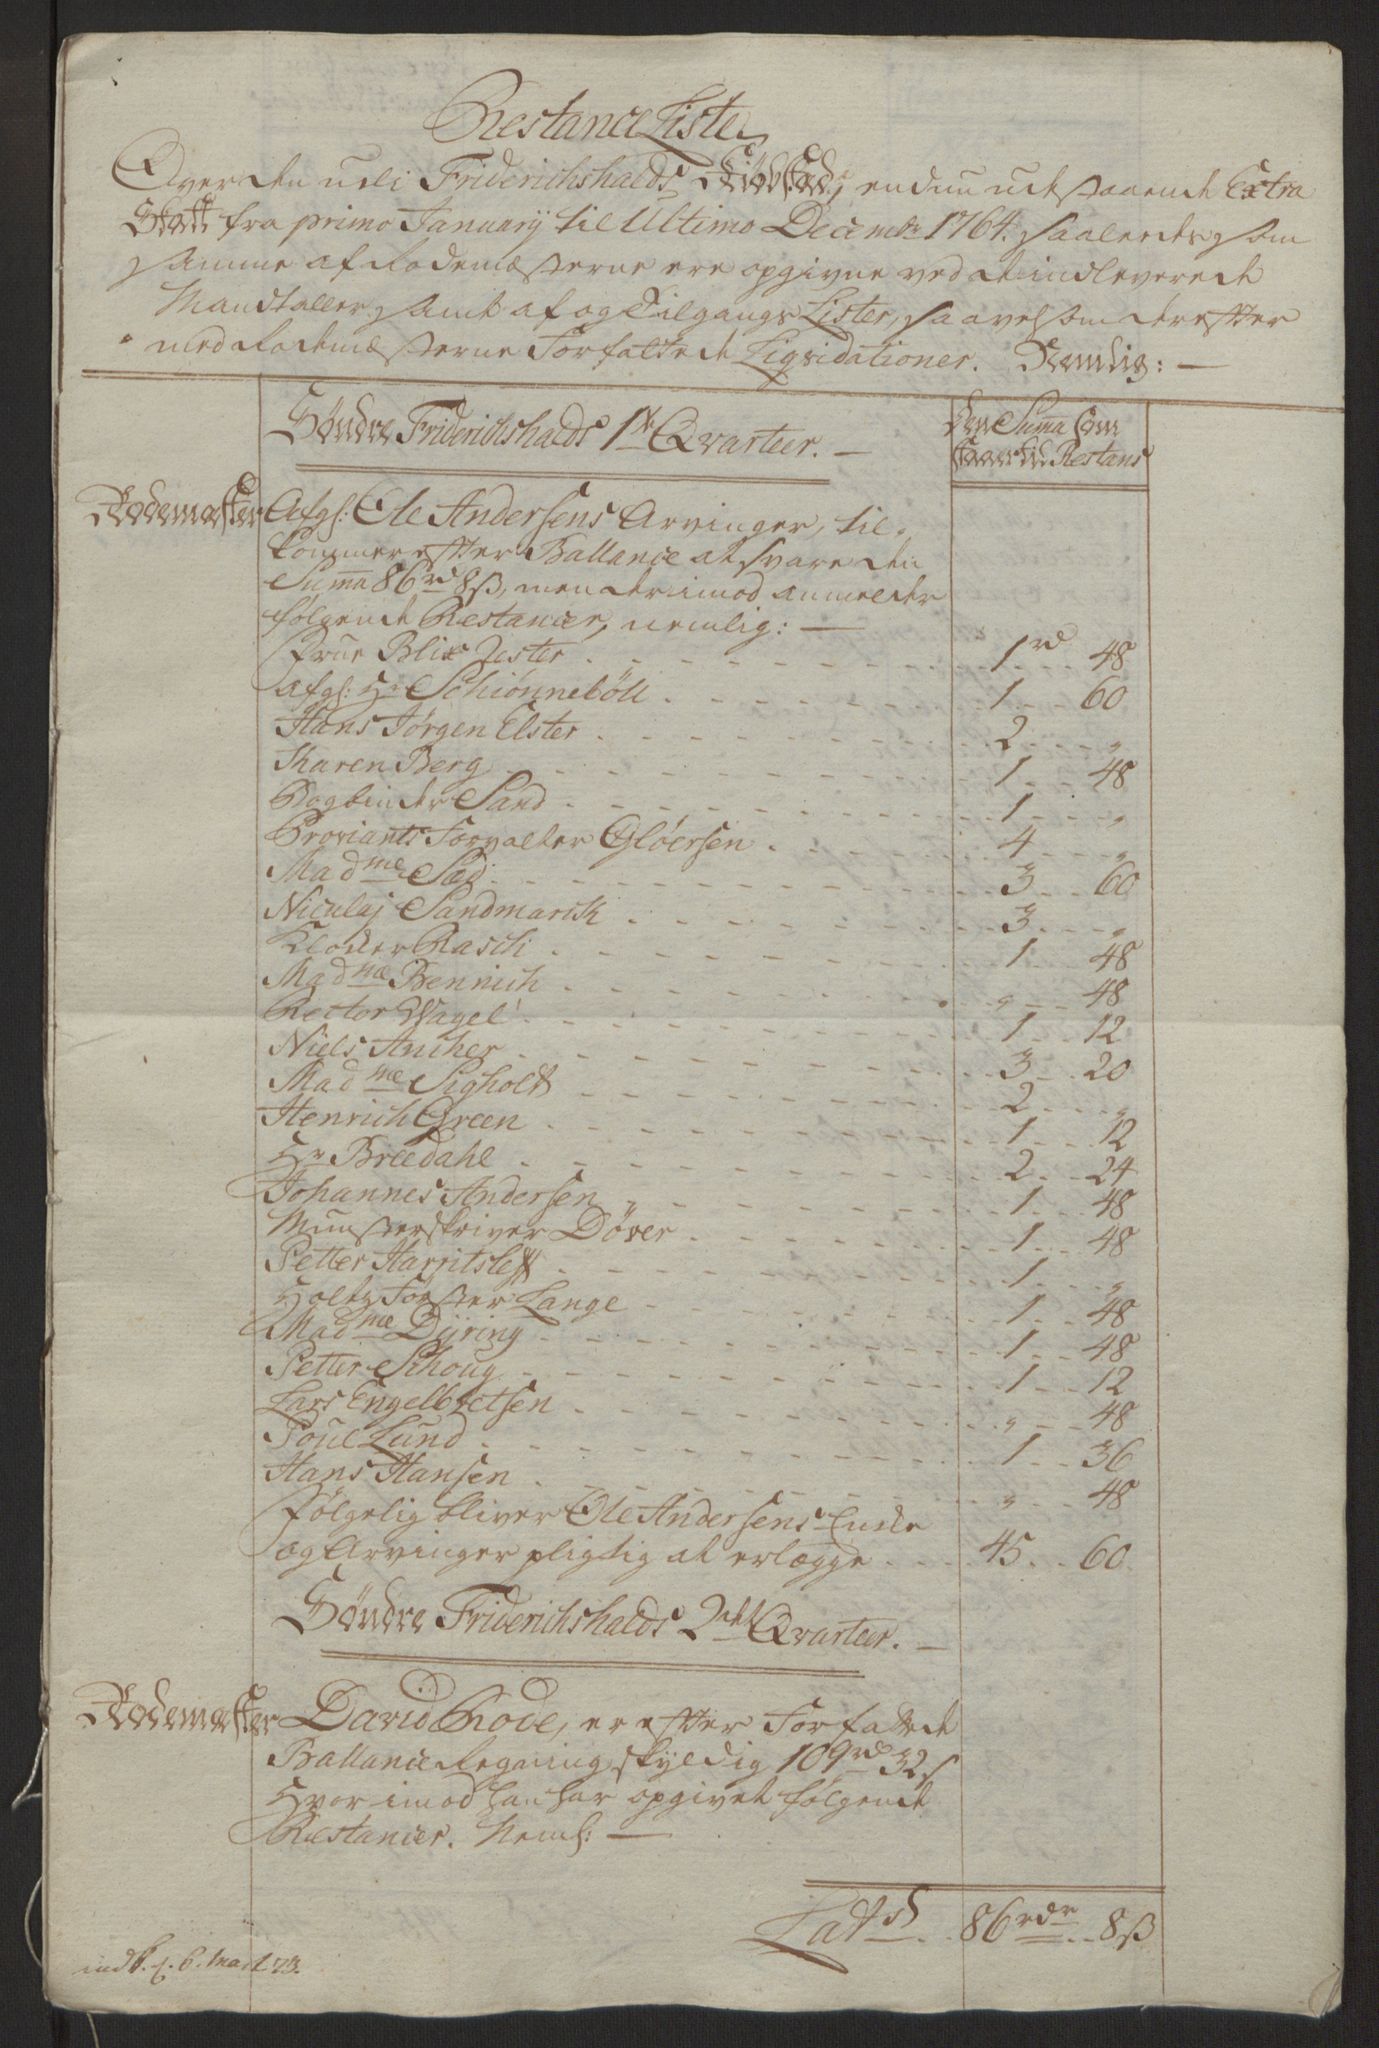 Restance Liste
Over den udi Friderichshalds Kiøbstad, endnu udestaaende Extra
Skatt fra primo Januarij til Ultimo Decembr 1764. saaledes som
samme af Rodemæsterne ere opgivne ved de indleverede
Mandtaller, samt af og Tilgangs Lister, saavelsom derefter
med Rodemæsterne Forfattede Liqvidationer. Nemlig: —
Søndre Friderichshalds 1te Qvarteer. —
Den Summa som
staaer til Restans
Rodemester Afgl: Ole Andersens Arvinger, til-
kommer efter Ballance at svare den
Summa 86 rd 8 ß, men derimod anmelder
følgende Restancer, nemlig: —
Frue Blix Zester 1 rd 48
afgl: Hr Schiønnebøll 1 60
Hans Jørgen Elster 2 "
Karen Berg 1 48
Bogbinder Sand 1 "
Proviants Forvalter Gløersen 4 "
Madme Sæd 3 60
Niculaj Sandmarck 3 "
Klocker Rasch 1 48
Madme Bennich " 48
Rector Wagel 1 12
Niels Ancher 3 20
Madme Sigholt 2 "
Henrich Green 1 12
Hr Breedahl 2 24
Johannes Andersen 1 48
Munsterskriver Døver 1 48
Petter Harritsleff 1 "
Holtz Førster Lange 1 48
Madme Dyring 1 48
Petter Schoug 1 12
Lars Engelbretsen " 48
Poul Lund 1 36
Hans Hansen " 48
følgelig bliver Ole Andersens Encke
og Arvinger pligtig at erlægge 45 60
Søndre Friderichshalds 2det Qvarteer. —
Rodemester David Rode, er efter Forfattede
Ballance Regning skyldig 109 rd 32 s
Hvorimod han har opgivet følgende
Restancer. Neml: —
Lats 86 rdr 8 ß
indk. d. 6. Mart 73.